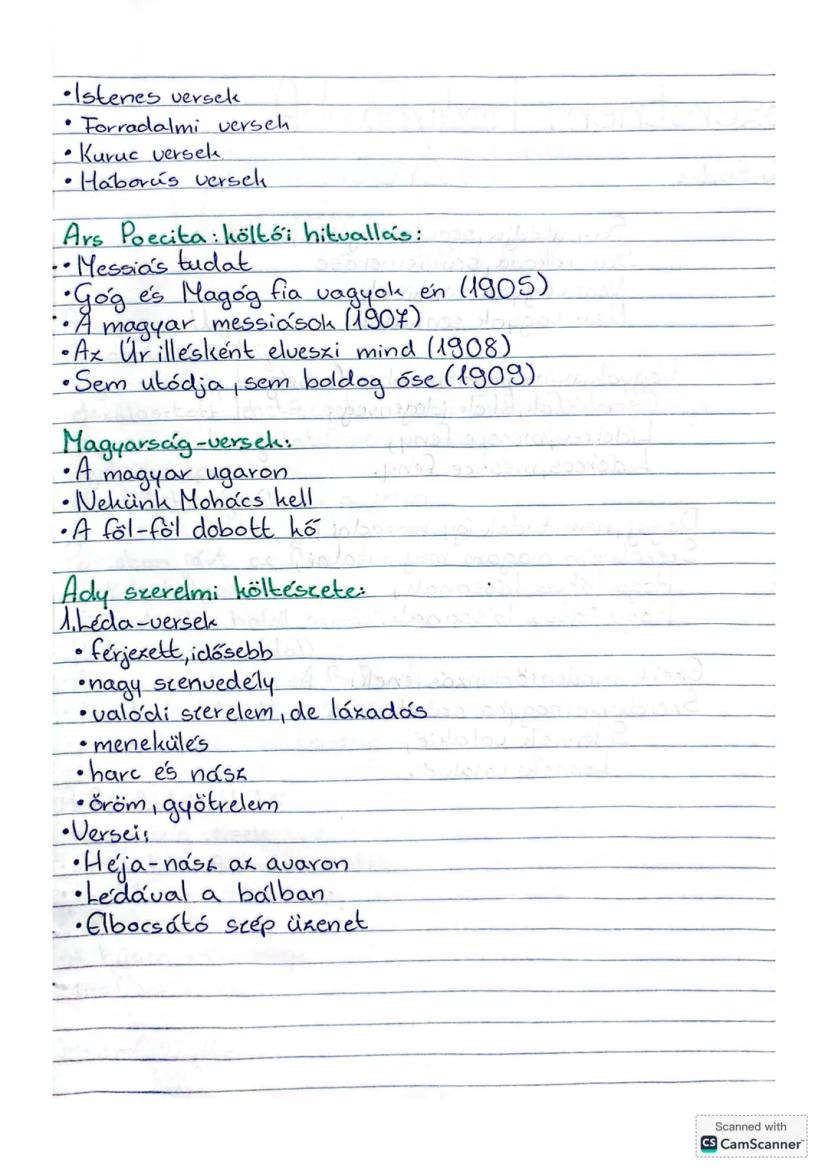 •Istenes versek
• Forradalmi versek
• Kuruc versek
• Háborús versek
Ars Poecita: költői hitvallás:
• Messiás tudat
•Góg és Magóg fia vagyok én (1905)
• A magyar messiások (1907)
• Az Úr illésként elveszi mind (1908)
• Sem utódja, sem boldog őse (1909)
Magyarság-versek:
• A magyar ugaron
• Nekünk Mohács kell
• A föl-föl dobott kő
Ady szerelmi költészete:
1. Léda-versek
• férjezett, idősebb
• nagy szenvedély
• valódi szerelem, de lázadás
• menekülés
• harc és nász
• öröm, gyötrelem
• Versei:
• Héja-nász az avaron
• Lédával a bálban
• Elbocsátó szép üzenet
Scanned with
CS CamScanner